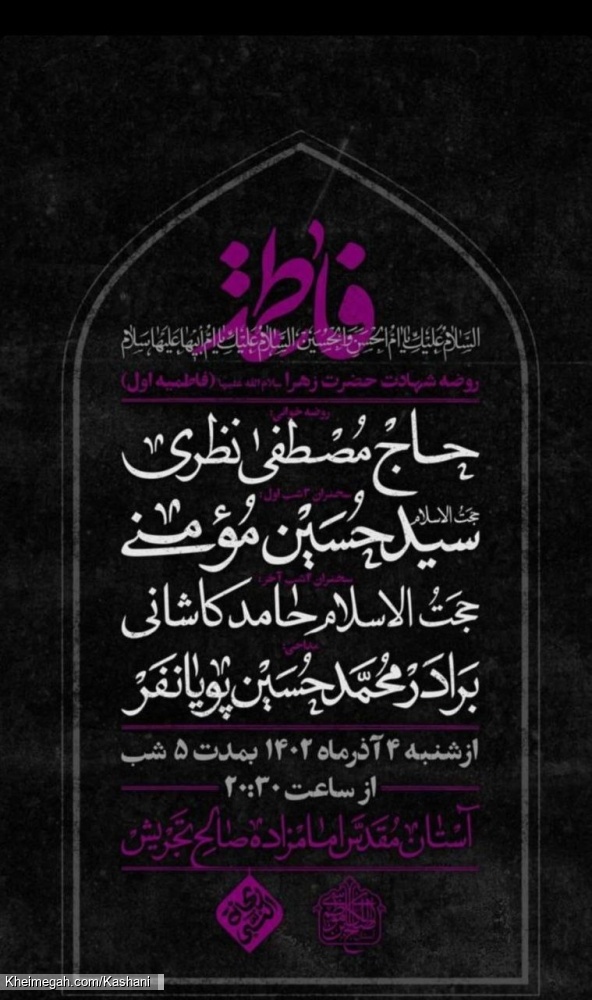 فاطمة
السلام علیک یا ام الحسن و الحسین، السلام علیک یا ام ابیها علیها سلام
روضه شهادت حضرت زهرا سلام الله علیها (فاطمیه اول)
روضه خوانی:
حاج مصطفی نظری
سخنران ۳ شب اول:
حجت الاسلام سید حسین مؤمنی
سخنران ۲ شب آخر:
حجت الاسلام حامد کاشانی
مداحی:
برادر محمدحسین پویانفر
از شنبه ۴ آذرماه ۱۴۰۲ بمدت ۵ شب
از ساعت ۲۰:۳۰
آستان مقدس امامزاده صالح تجریش
Kheimegah.com/Kashani